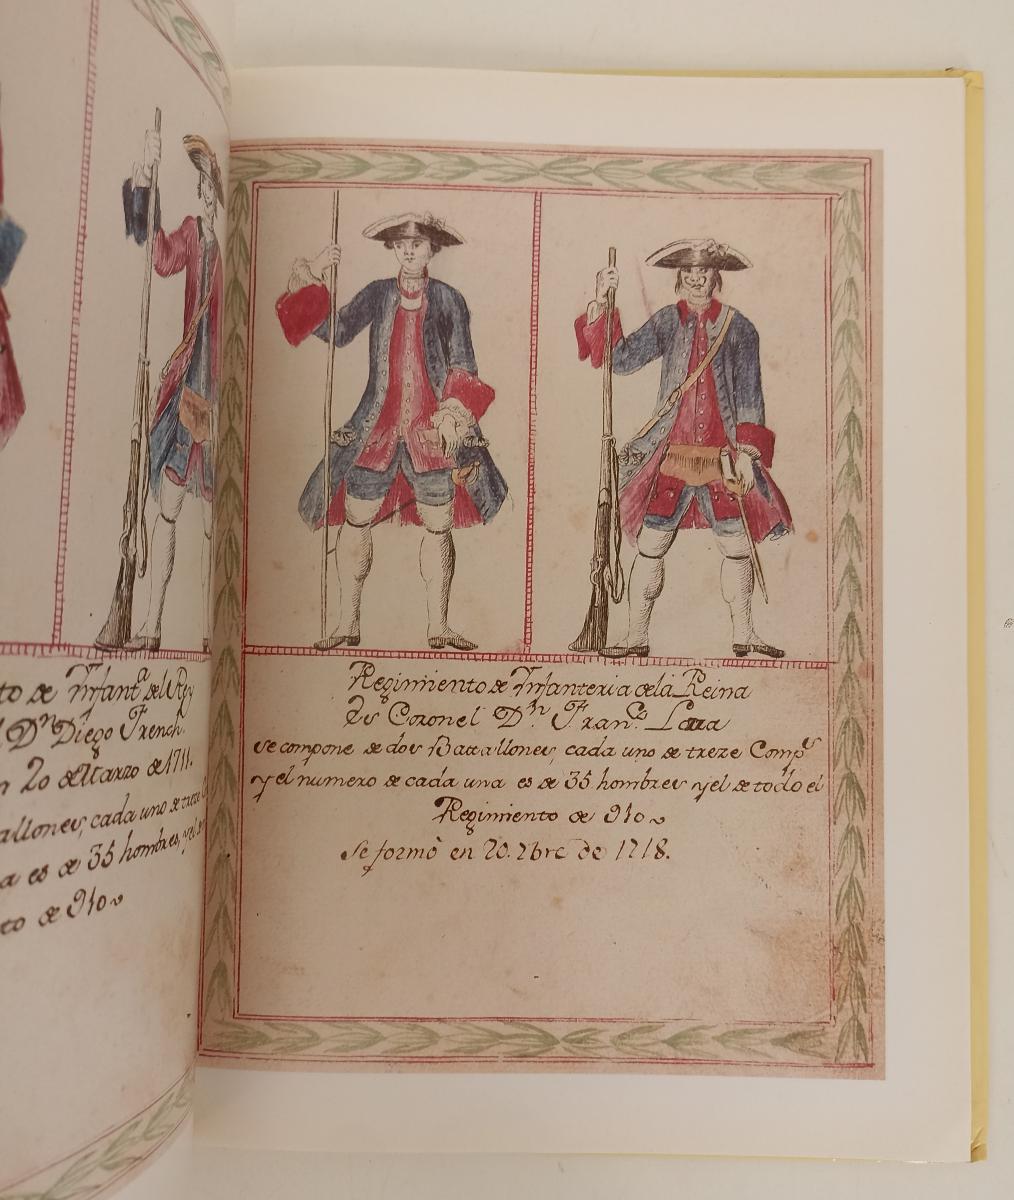 to de Ynfant.ª del Rey
l D.n Diego French.
n 20 de Marzo de 1711.
allones, cada uno de treze
a es de 35 hombres, y el
to de 910
Regimiento de Ynfanteria de la Reina
Es Coronel D.n Fran.co
se compone de dos Batallones, cada uno de treze Comp.s
y el numero de cada una es de 35 hombres y el de todo el
Regimiento de 910
se formò en 20. 7bre de 1718.